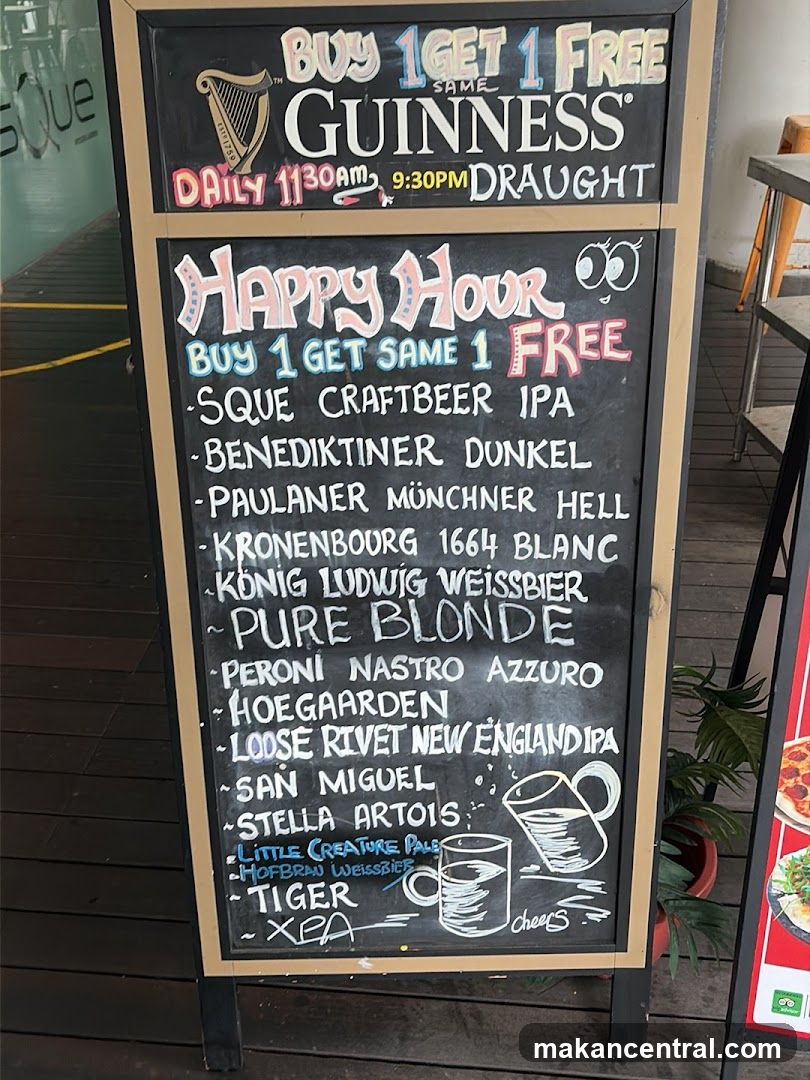 BUY 1 GET 1 FREE
SAME
GUINNESS
EST.1759
DAILY 1130AM 9:30PM DRAUGHT
SQue
HAPPY HOUR
BUY 1 GET SAME 1 FREE
- SQUE CRAFTBEER IPA
- BENEDIKTINER DUNKEL
- PAULANER MÜNCHNER HELL
- KRONENBOURG 1664 BLANC
- KÖNIG LUDWIG WEISSBIER
~ PURE BLONDE
- PERONI NASTRO AZZURO
- HOEGAARDEN
- LOOSE RIVET NEW ENGLAND IPA
~ SAN MIGUEL
~ STELLA ARTOIS
- LITTLE CREATURE PALE
- HOFBRAU WEISSBIER
- TIGER
~ XPA
cheers
makancentral.com